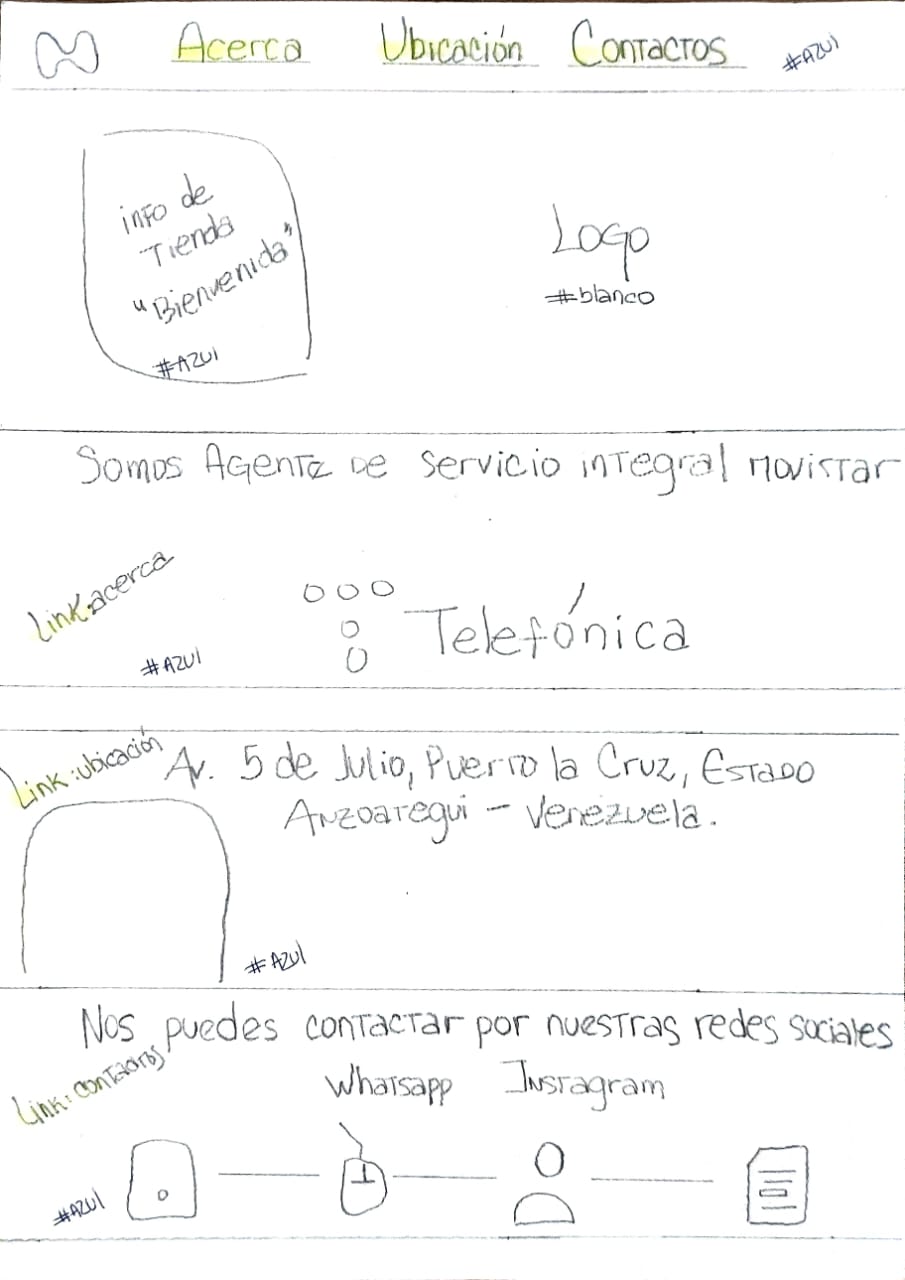 Acerca Ubicación Contactos #Azul
info de
Tienda
"Bienvenida"
#Azul
Logo
#blanco
Somos Agente de Servicio integral Movistar
Link:acerca
#Azul
Telefónica
Link:ubicación
Av. 5 de Julio, Puerto la Cruz, Estado
Anzoategui - Venezuela.
#Azul
Nos puedes contactar por nuestras redes sociales
Link:contactos
Whatsapp Instagram
#Azul